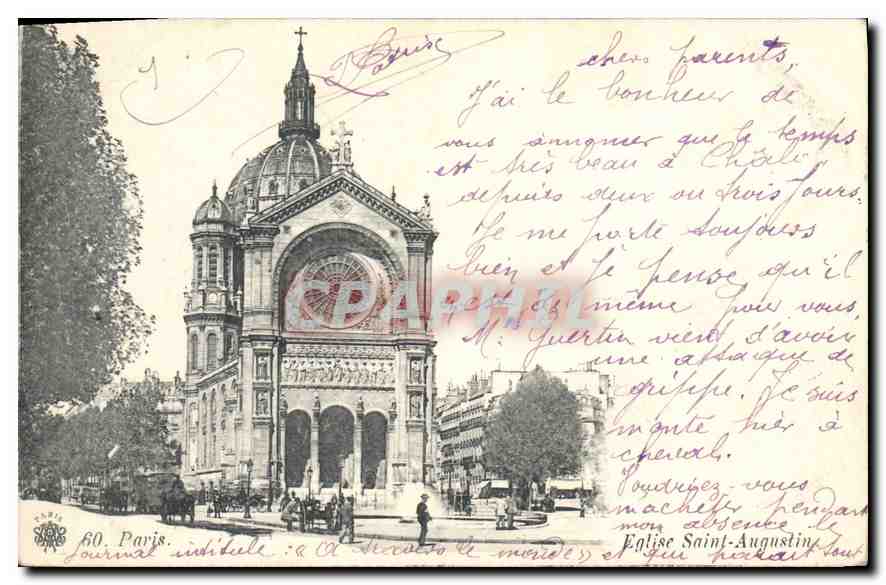 Paris
chers parents,
J'ai le bonheur de
vous annoncer que le temps
est très beau à Châli
depuis deux ou trois jours.
Je me porte toujours
bien et je pense qu'il
est de même pour vous,
M. Guertin vient d'avoir
une attaque de
grippe. Je suis
monté hier à
cheval.
Voudriez-vous
m'acheter pendant
mon absence le
PARIS
60. Paris.
Eglise Saint-Augustin
journal intitulé : « A travers le monde » et qui paraît tout
CPAPHIL